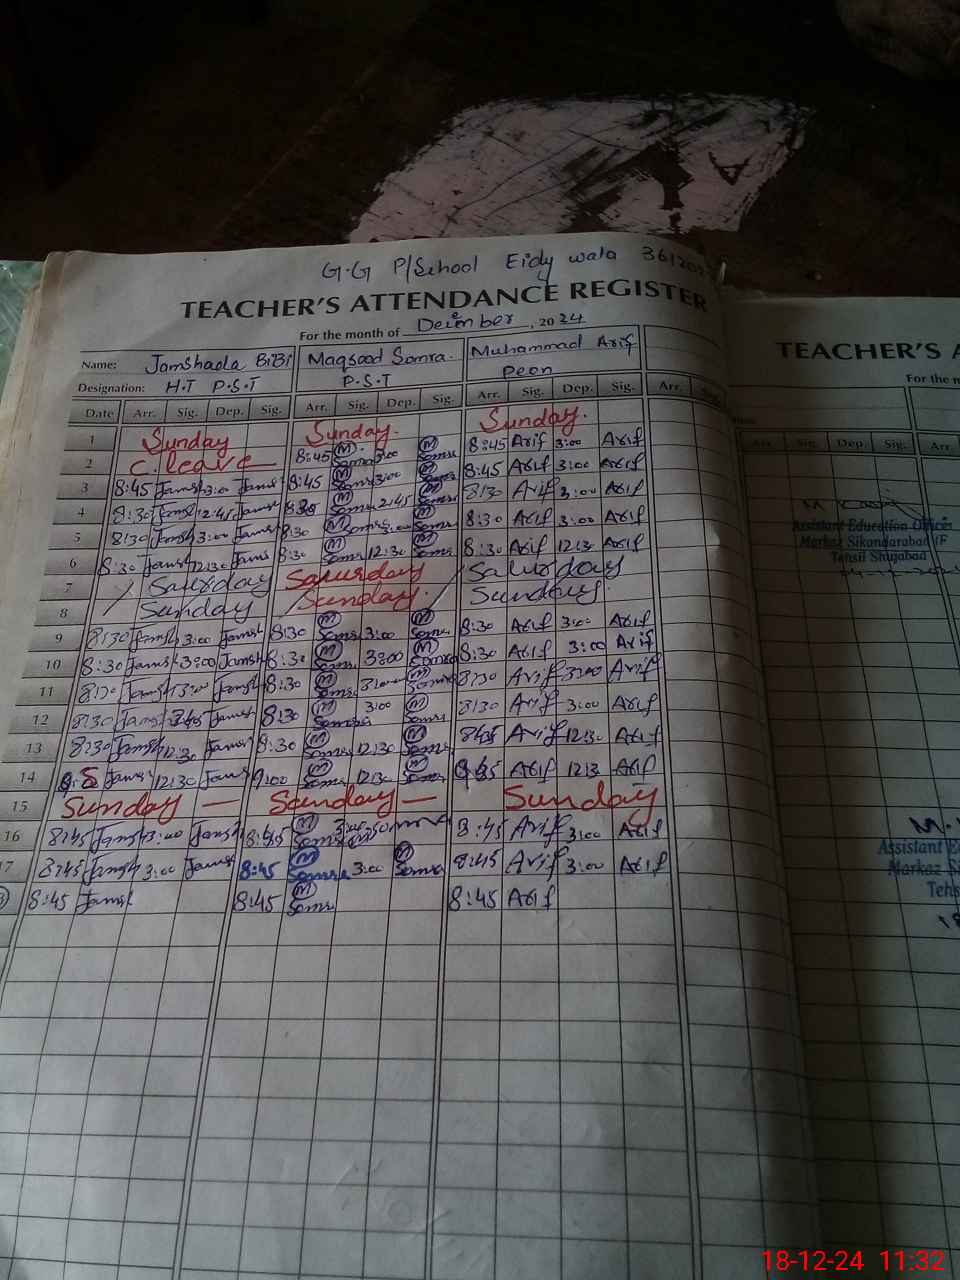 G.G P/School Eidy wala
TEACHER'S ATTENDANCE REGISTER
For the month of December, 2024
Name: Jamshada BiBi Maqsood Somra. Muhammad Arif
Designation: H.T P.S.T P.S.T Peon
Date Arr. Sig. Dep. Sig. Arr. Sig. Dep. Sig. Arr. Sig. Dep. Sig. Arr.
1 Sunday Sunday. Sunday.
2 C.leave 8:45 M Somra 3:00 M Somra 8:45 Arif 3:00 Arif
3 8:45 Jamsh 3:00 Jamsh 8:45 M 3:00 M 8:45 Arif 3:00 Arif
4 8:30 Jamsh 2:45 Jamsh M 2:45 M 8:30 Arif 3:00 Arif
5 8:30 Jamsh 3:00 Jamsh 8:30 M Somra 3:00 M Somra 8:30 Arif 3:00 Arif
6 8:30 Jamsh 12:30 Jams 8:30 M Somra 12:30 M Somra 8:30 Arif 12:30 Arif
7 Saturday Saturday Saturday
8 Sunday Sunday. Sunday.
9 8:30 Jamsh 3:00 Jamsh 8:30 M Somra 3:00 M Somra 8:30 Arif 3:00 Arif
10 8:30 Jamsh 3:00 Jamsh 8:30 M Somra 3:00 M Somra 8:30 Arif 3:00 Arif
11 8:30 Jamsh 3:00 Jamsh 8:30 M Somra M Somra 8:30 Arif 3:00 Arif
12 8:30 Jamsh Jamsh 8:30 M Somra 3:00 M Somra 8:30 Arif 3:00 Arif
13 8:30 Jamsh 12:30 Jamsh 8:30 M Somra 12:30 M Somra Arif 12:30 Arif
14 Jamsh 12:30 Jamsh 9:00 M Somra 12:30 M Somra Arif 12:30 Arif
15 Sunday — Sunday — Sunday
16 8:45 Jamsh 3:00 Jamsh 8:45 M Somra 8:45 Arif 3:00 Arif
17 8:45 Jamsh 3:00 Jamsh 8:45 M Somra 3:00 M Somra 8:45 Arif 3:00 Arif
8:45 Jamsh 8:45 M Somra 8:45 Arif
TEACHER'S A
For the m
Arr. Sig. Dep. Sig. Arr.
Assistant Education Officer
Markaz Sikandarabad (F
Tehsil Shujabad
Assistant E
Markaz Si
Tehs
18-12-24 11:32